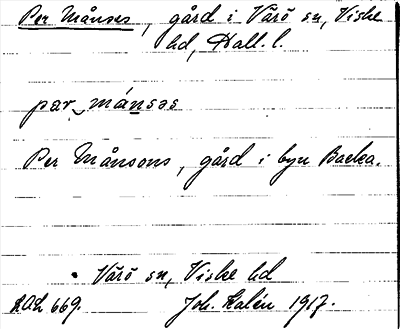 Per Månses, gård i Värö sn, Viske
hd, Hall. l.
pær mánsəs
Per Månsons, gård i byn Backa.
Värö sn, Viske hd
AOh 669. Joh. Kalén 1917.